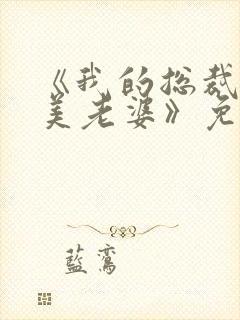 《我的总裁
美老婆》免
蓝鸾